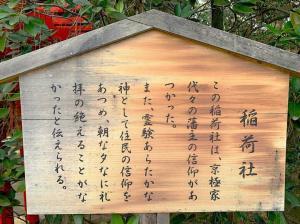 稲荷社
この稲荷社は、京極家
代々の藩主の信仰があ
つかった。
また、霊験あらたかな
神として住民の信仰を
あつめ、朝な夕なに礼
拝の絶えることがな
かったと伝えられる。